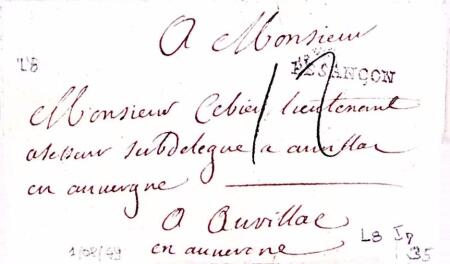 A Monsieur
L8
BESANÇON
12
Monsieur Cebier lieutenant
assesseur subdelegue a aurillac
en auvergne
A Auvillac
en auvergne
1/08/49
L8 I7
35